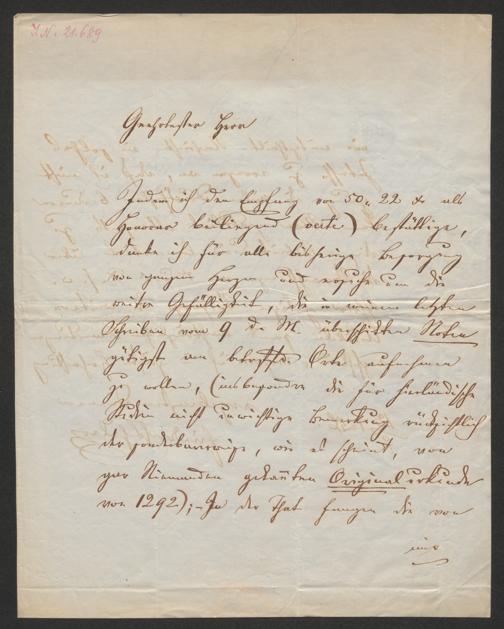 I.N. 21.689
Geehrtester Herr
Indem ich den Empfang von 50 22 x als
Honorar beiliegend (recte) bestättige,
danke ich für alle bisherige Besorgung
von ganzem Herzen und ersuche um die
weitere Gefälligkeit, die in meinem letzten
Schreiben vom 9 d. M. überschickten Noten
gütigst am betreffde Orte aufnehmen
zu wollen, (insbesondre die für
Studien nicht unwichtige Bemerkung rücksichtlich
der sonderbarerweise, wie es scheint, von
gar Niemanden gekannten Originalurkunde
von 1292);- In der That fangen die von
mir